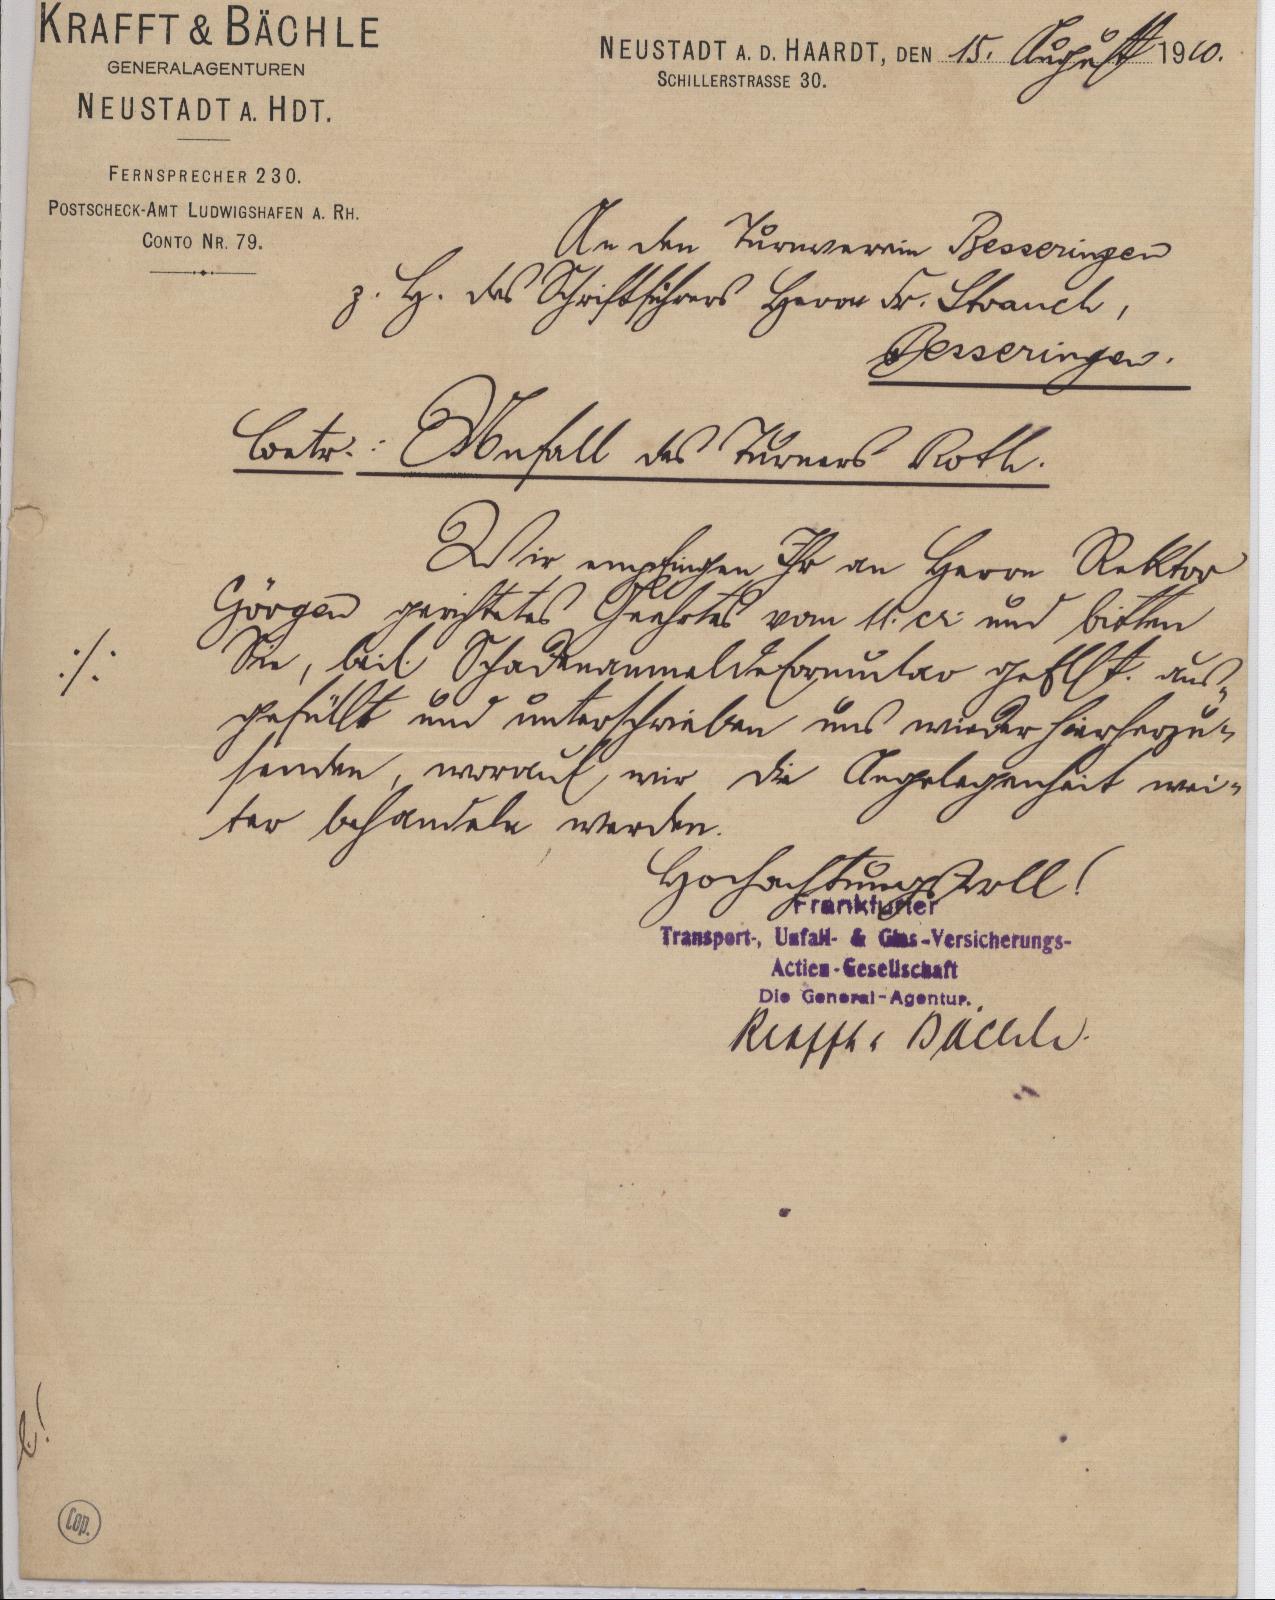 KRAFFT & BÄCHLE
GENERALAGENTUREN
NEUSTADT A. HDT.
FERNSPRECHER 230.
POSTSCHECK-AMT LUDWIGSHAFEN A. RH.
CONTO NR. 79.
NEUSTADT A. D. HAARDT, DEN 15. August 1910.
SCHILLERSTRASSE 30.
An den Turnverein Besseringen
z. H. des Schriftführers Herrn Fr. Strauch,
Besseringen.
Betr.: Unfall des Turners Roth.
Wir empfingen Ihr an Herrn Rektor
Görgen gerichtetes Geehrtes vom 11. cr. und bitten
./. Sie, beil. Schadenanmeldeformular geflt. aus-
gefüllt und unterschrieben uns wieder hierherzu-
senden, worauf wir die Angelegenheit wei-
ter behandeln werden.
Hochachtungsvoll!
Frankfurter
Transport-, Unfall- & Glas-Versicherungs-
Actien-Gesellschaft
Die General-Agentur.
Krafft & Bächle.
Cop.